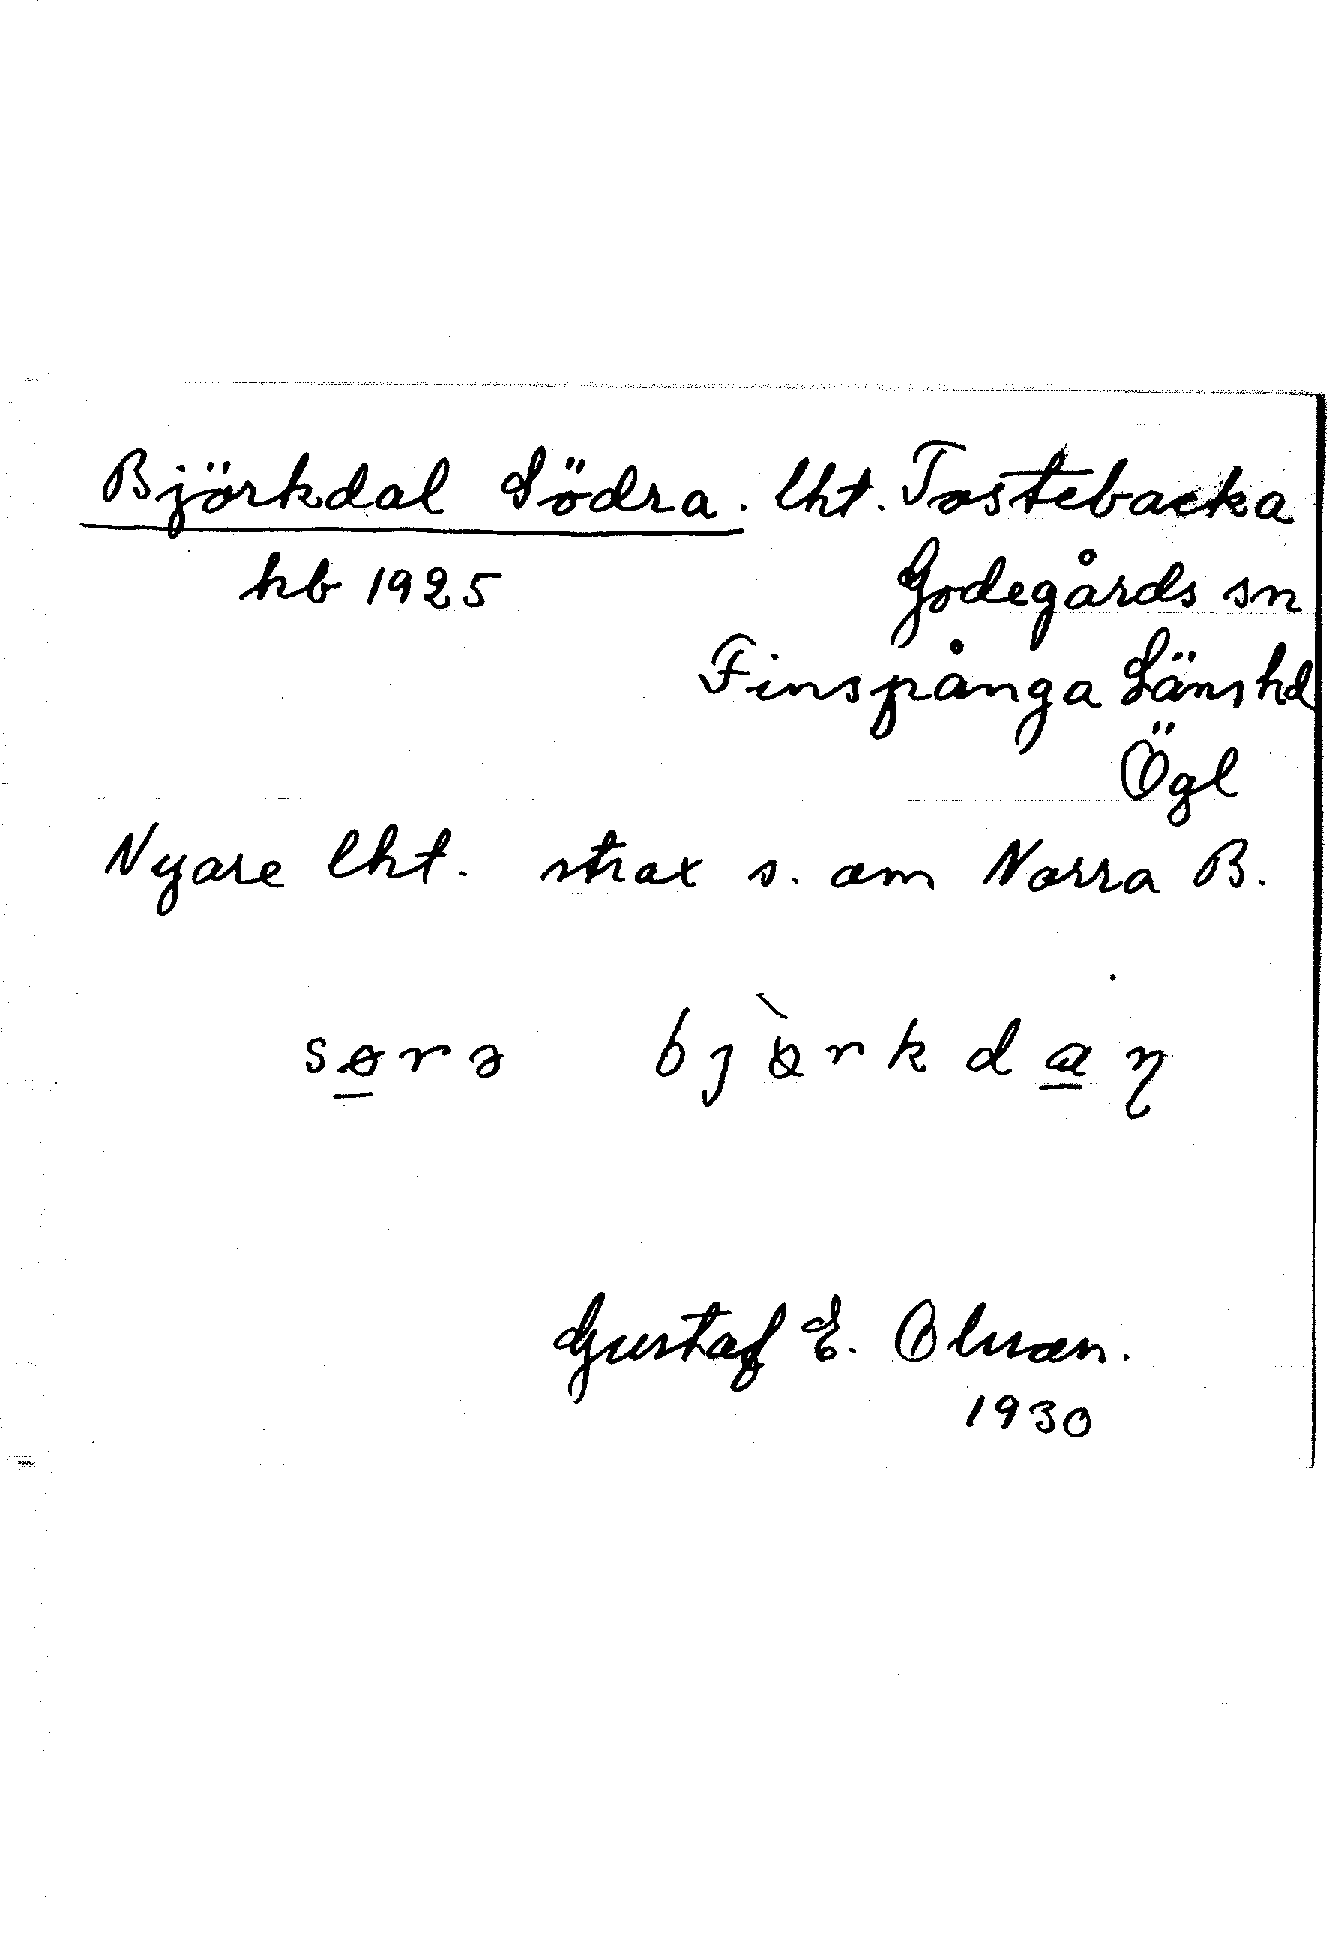 Björkdal Södra. lht. Tostebacka
kb 1925 Godegårds sn
Finspånga Länshd
Ögl
Nyare lht. strax s. om Norra B.
Gustaf E. Olsson.
1930